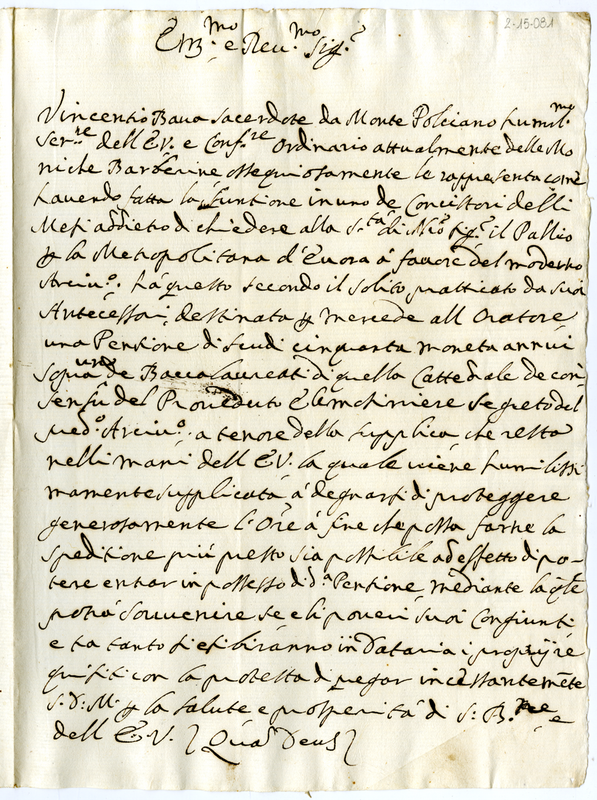 2-15-081
Em.mo e Rev.mo Sig.re
Vincentio Bava sacerdote da Monte Polciano humil.mo
Ser.re dell'E.V. e Conf.re Ordinario attualmente delle Mo
niche Barberine ossequiosamente le rappresenta come
havendo fatta la funtione in uno de Concistori delli
Mesi addietro di chiedere alla S.tà di N'ro Sig.re il Pallio
p la Metropolitana d'Evora à favore del moderno
Arciv.o, hà questo secondo il solito pratticato da suoi
Antecessori, destinata p mercede all Oratore
una Pensione di scudi cinquanta moneta annui
sopra uno de Baccalaureati di quella Cattedrale de con
sensu del Proveduto Elemosiniere segreto del
med.o Arciv.o, a tenore della supplica, che resta
nelli mani dell E.V. la quale viene humilissi
mamente supplicata à degnarsi di proteggere
generosamente l'Ore à fine che possa farne la
speditione più presto sia possibile ad effetto di po-
tere entrar in possesso di d.a Pensione, mediante la qle
potrà souvenire se e li poveri suoi Congiunti
e tra tanto si esibiranno in Dataria i proprij re
quisiti con la protesta di pregar incessantemete
S. D. M. p la salute e prosperità di S. B.ne e
dell E. V. Qua Deus